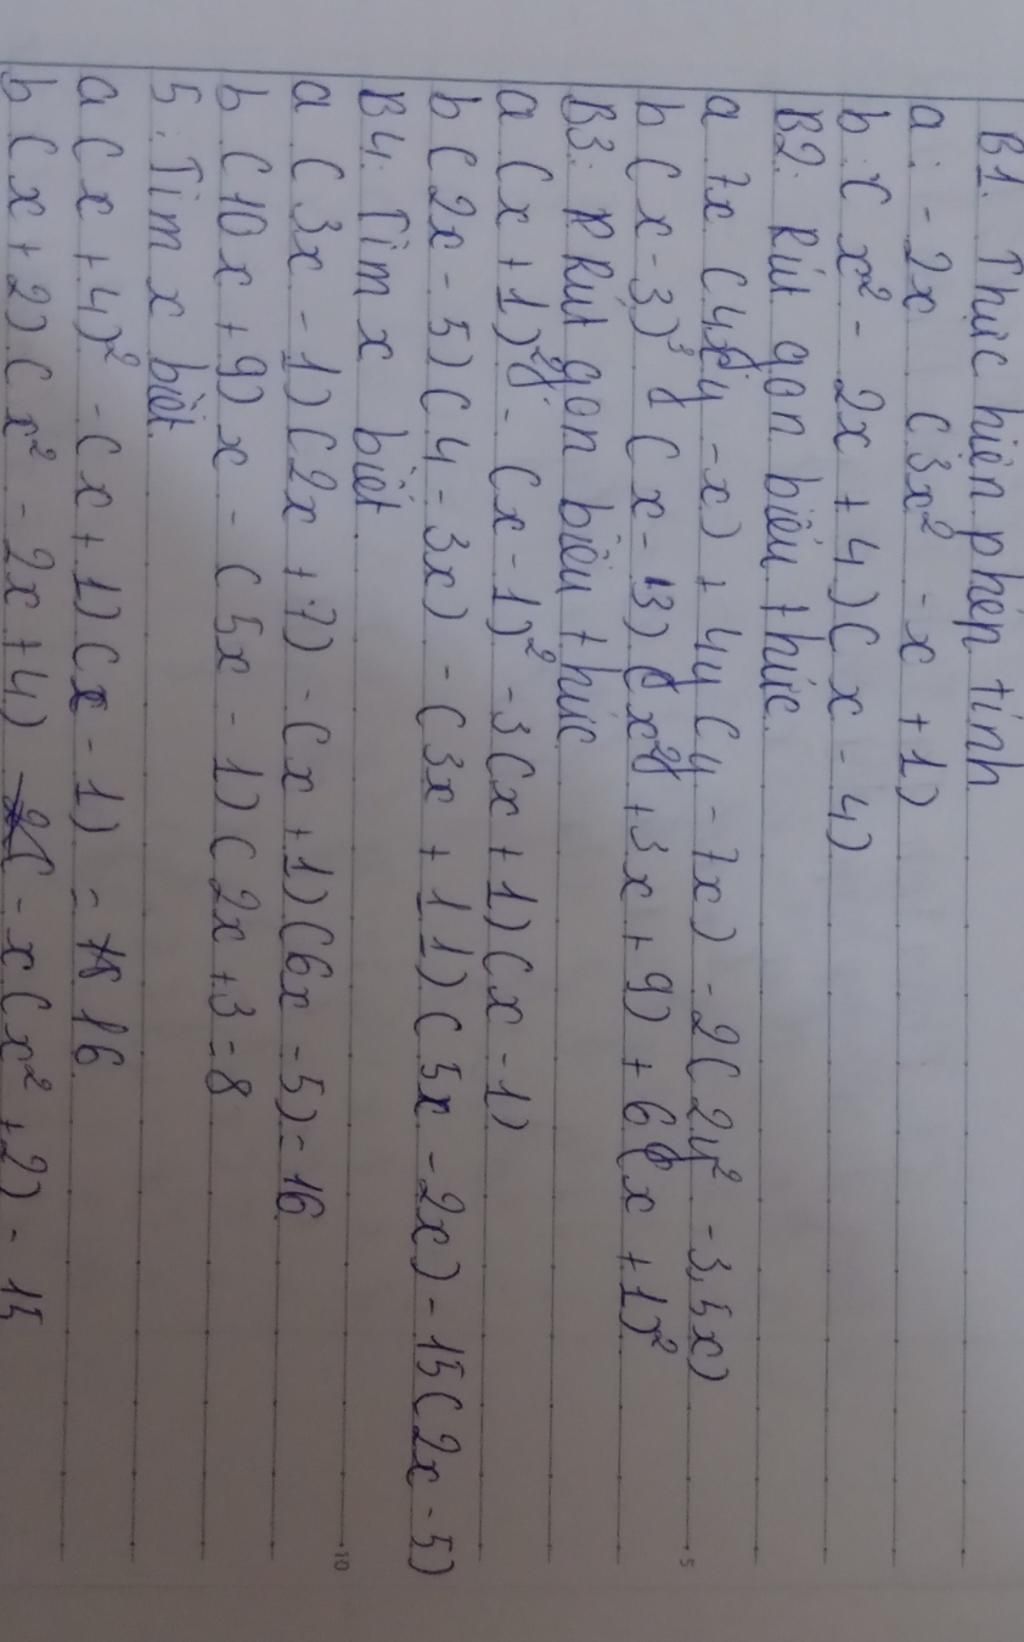 B1. Thực hiện phép tính
a: - 2x (3x² - x + 1)
b: (x² - 2x + 4)(x - 4)
B2: Rút gọn biểu thức
a 7x (4y - x) + 4y (y - 7x) - 2(2y² - 3,5x)
b (x - 3)³ (x - 3) (x² + 3x + 9) + 6(x + 1)²
B3: Rút gọn biểu thức
a (x + 1)² - (x - 1)² - 3(x + 1)(x - 1)
b (2x - 5)(4 - 3x) - (3x + 11)(5x - 2x) - 15(2x - 5)
B4: Tìm x biết
a (3x - 1)(2x + 7) - (x + 1)(6x - 5) = 16
b (10x + 9)x - (5x - 1)(2x + 3 = 8
5: Tìm x biết
a (x + 4)² - (x + 1)(x - 1) = 16
b (x + 2)(x² - 2x + 4) - x(x² + 2) - 15
10
5